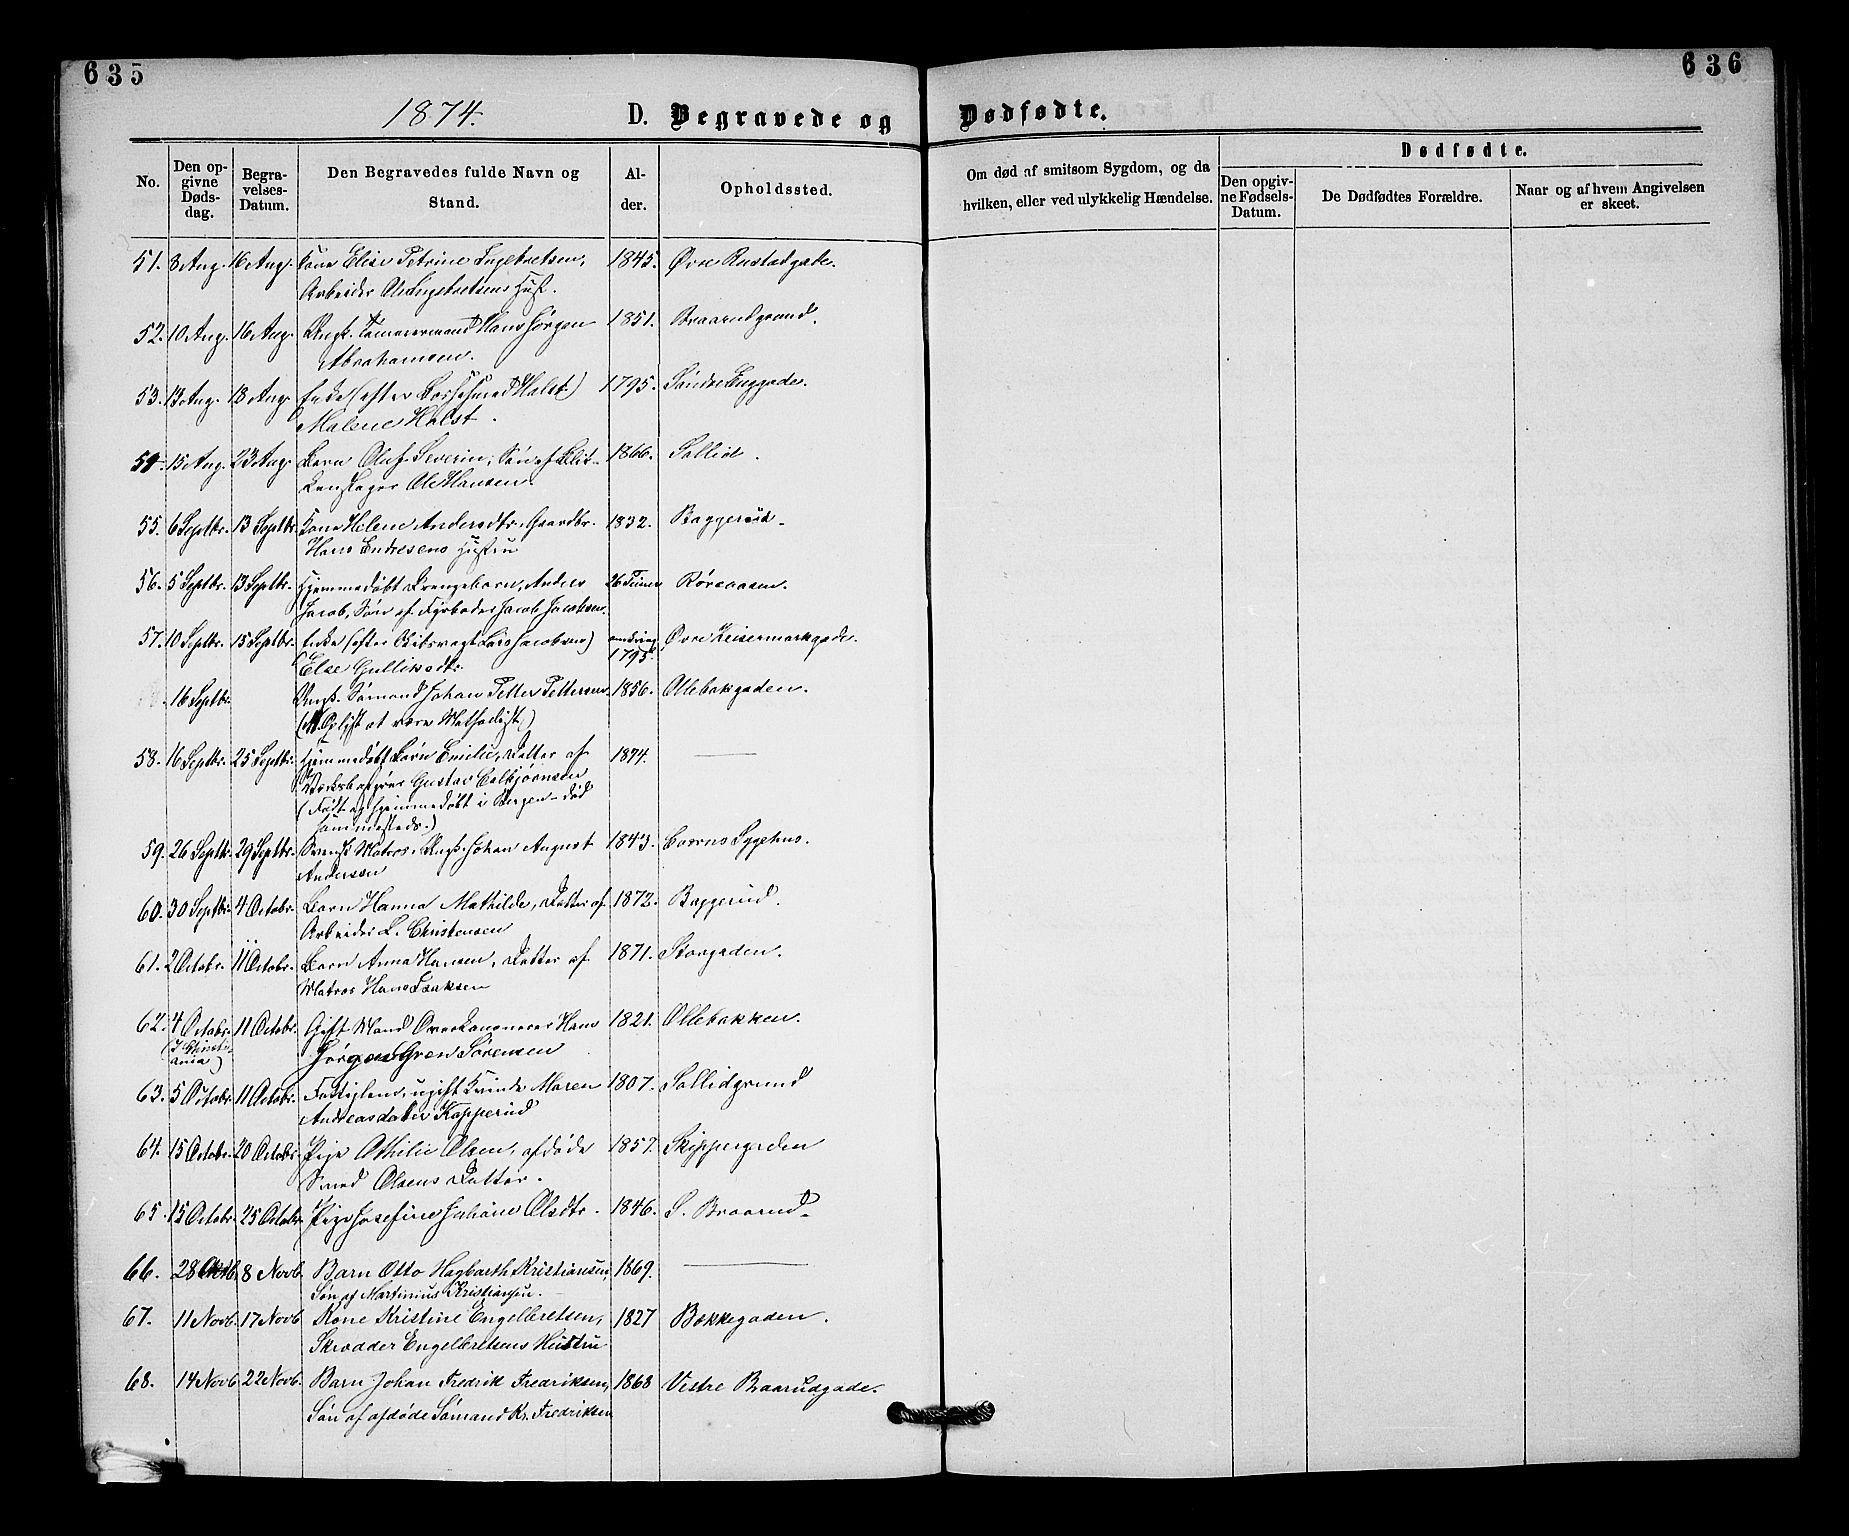 635
636
1874.
D. Begravede og Dødfødte.
No.
Den opgivne Dødsdag.
Begravelses-Datum.
Den Begravedes fulde Navn og Stand.
Alder.
Opholdssted.
Om død af smitsom Sygdom, og da hvilken, eller ved ulykkelig Hændelse.
Dødfødte.
Den opgivne Fødsels-Datum.
De Dødfødtes Forældre.
Naar og af hvem Angivelsen er skeet.
51. 8 Aug. 16 Aug. Kone Elise Petrine Ingebretsen, 1845. Øvre Rustadgade.
Arbeider Ole Ingebretsens Hust.
52. 10 Aug. 16 Aug. Ungk. Tømmermand Hans Jørgen 1851. Braarudgrund.
Abrahamsen.
53. 13 Aug. 18 Aug. Enke (efter Holst) 1795. Søndre Enggade.
Malene Holst.
54. 15 Aug. 23 Aug. Barn Oluf Severin, Søn af Blik- 1866. Sollid.
kenslager Ole Hansen.
55. 6 Septbr. 13 Septbr. Kone Helene Andersdtr. Gaardbr. 1832. Baggerud.
Hans Endresens Hustru
56. 5 Septbr. 13 Septbr. Hjemmedøbt Drengebarn, Anders 26 Timer Røreaasen.
Jacob, Søn af Fyrbøder Jacob Jacobsen.
57. 10 Septbr. 15 Septbr. Enke (efter Lars Jacobsen) omkring 1795. Øvre Keisermarkgade.
(Else Gulliksdtr.
16 Septbr. Ungk. Sømand Johan Petter Pettersen 1856. Ollebakgaden.
(Oplyst at være Methodist.)
58. 16 Septbr. 25 Septbr. Hjemmedøbt Barn Emilie, Datter af 1874.
Gustav
(Født og hjemmedøbt i Bergen - død
sammesteds.)
59. 26 Septbr. 29 Septbr. Svensk Matros, Ungk. Johan August 1843. Byens Sygehus.
Andersson
60. 30 Septbr. 4 Octobr. Barn Hanna Mathilde, Datter af 1872. Baggerud.
Arbeider L. Christensen
61. 2 Octobr. 11 Octobr. Barn Anna Hansen, Datter af 1871. Storgaden.
Matros Hans Isaksen
62. 4 Octobr. 11 Octobr. Gift Mand Overkanoneer Hans 1821. Ollebakken.
(I Christiania) Jørgen Gren Sørensen
63. 5 Octobr. 11 Octobr. Fattiglem, ugift Kvinde Maren 1807. Sollidgrund
Andreasdatter Kopperud
64. 15 Octobr. 20 Octobr. Pige Othilie Olsen, afdøde 1857. Skippergaden
Smed Olsens Datter.
65. 15 Octobr. 25 Octobr. Pige Josefine Juliane Olsdtr. 1846. S. Braarud.
66. 28 Oktb. 8 Novb. Barn Otto Hagbarth Kristiansen, 1869.
Søn af Martinius Kristiansen.
67. 11 Novb. 17 Novb. Kone Kristine Engelbretsen, 1827 Bækkegaden.
Skrædder Engelbretsens Hustru
68. 14 Novb. 22 Novb. Barn Johan Fredrik Fredriksen, 1868 Vestre Braarudgade.
Søn af afdøde Sømand Kr. Fredriksen